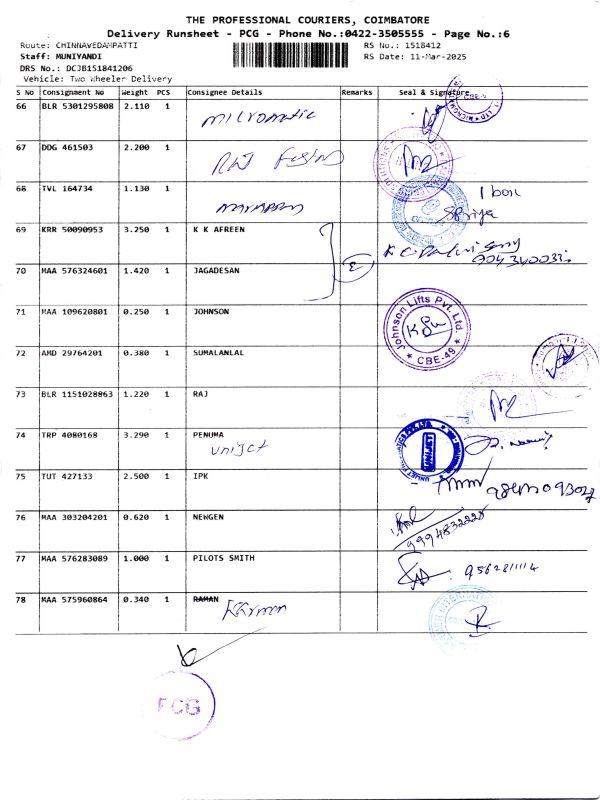 THE PROFESSIONAL COURIERS, COIMBATORE
Delivery Runsheet - PCG - Phone No.:0422-3505555 - Page No.:6
Route: CHINNAVEDAMPATTI RS No.: 1518412
Staff: MUNIYANDI RS Date: 11-Mar-2025
DRS No.: DCJB151841206
Vehicle: Two Wheeler Delivery
S No Consignment No Weight PCS Consignee Details Remarks Seal & Signature
66 BLR 5301295808 2.110 1 micromatic
67 DDG 461503 2.200 1
68 TVL 164734 1.130 1 1 box
Spriya
69 KRR 50090953 3.250 1 K K AFREEN
70 MAA 576324601 1.420 1 JAGADESAN 2
71 MAA 109620801 0.250 1 JOHNSON Johnson Lifts Pvt. Ltd. CBE-49
72 AMD 29764201 0.380 1 SUMALANLAL
73 BLR 1151028863 1.220 1 RAJ
74 TRP 4080168 3.290 1 PENUMA
unijet UNIJET
75 TUT 427133 2.500 1 IPK
76 MAA 303204201 0.620 1 NEWGEN
9994832225
77 MAA 576283089 1.000 1 PILOTS SMITH
78 MAA 575960864 0.340 1 RAMAN
PCG